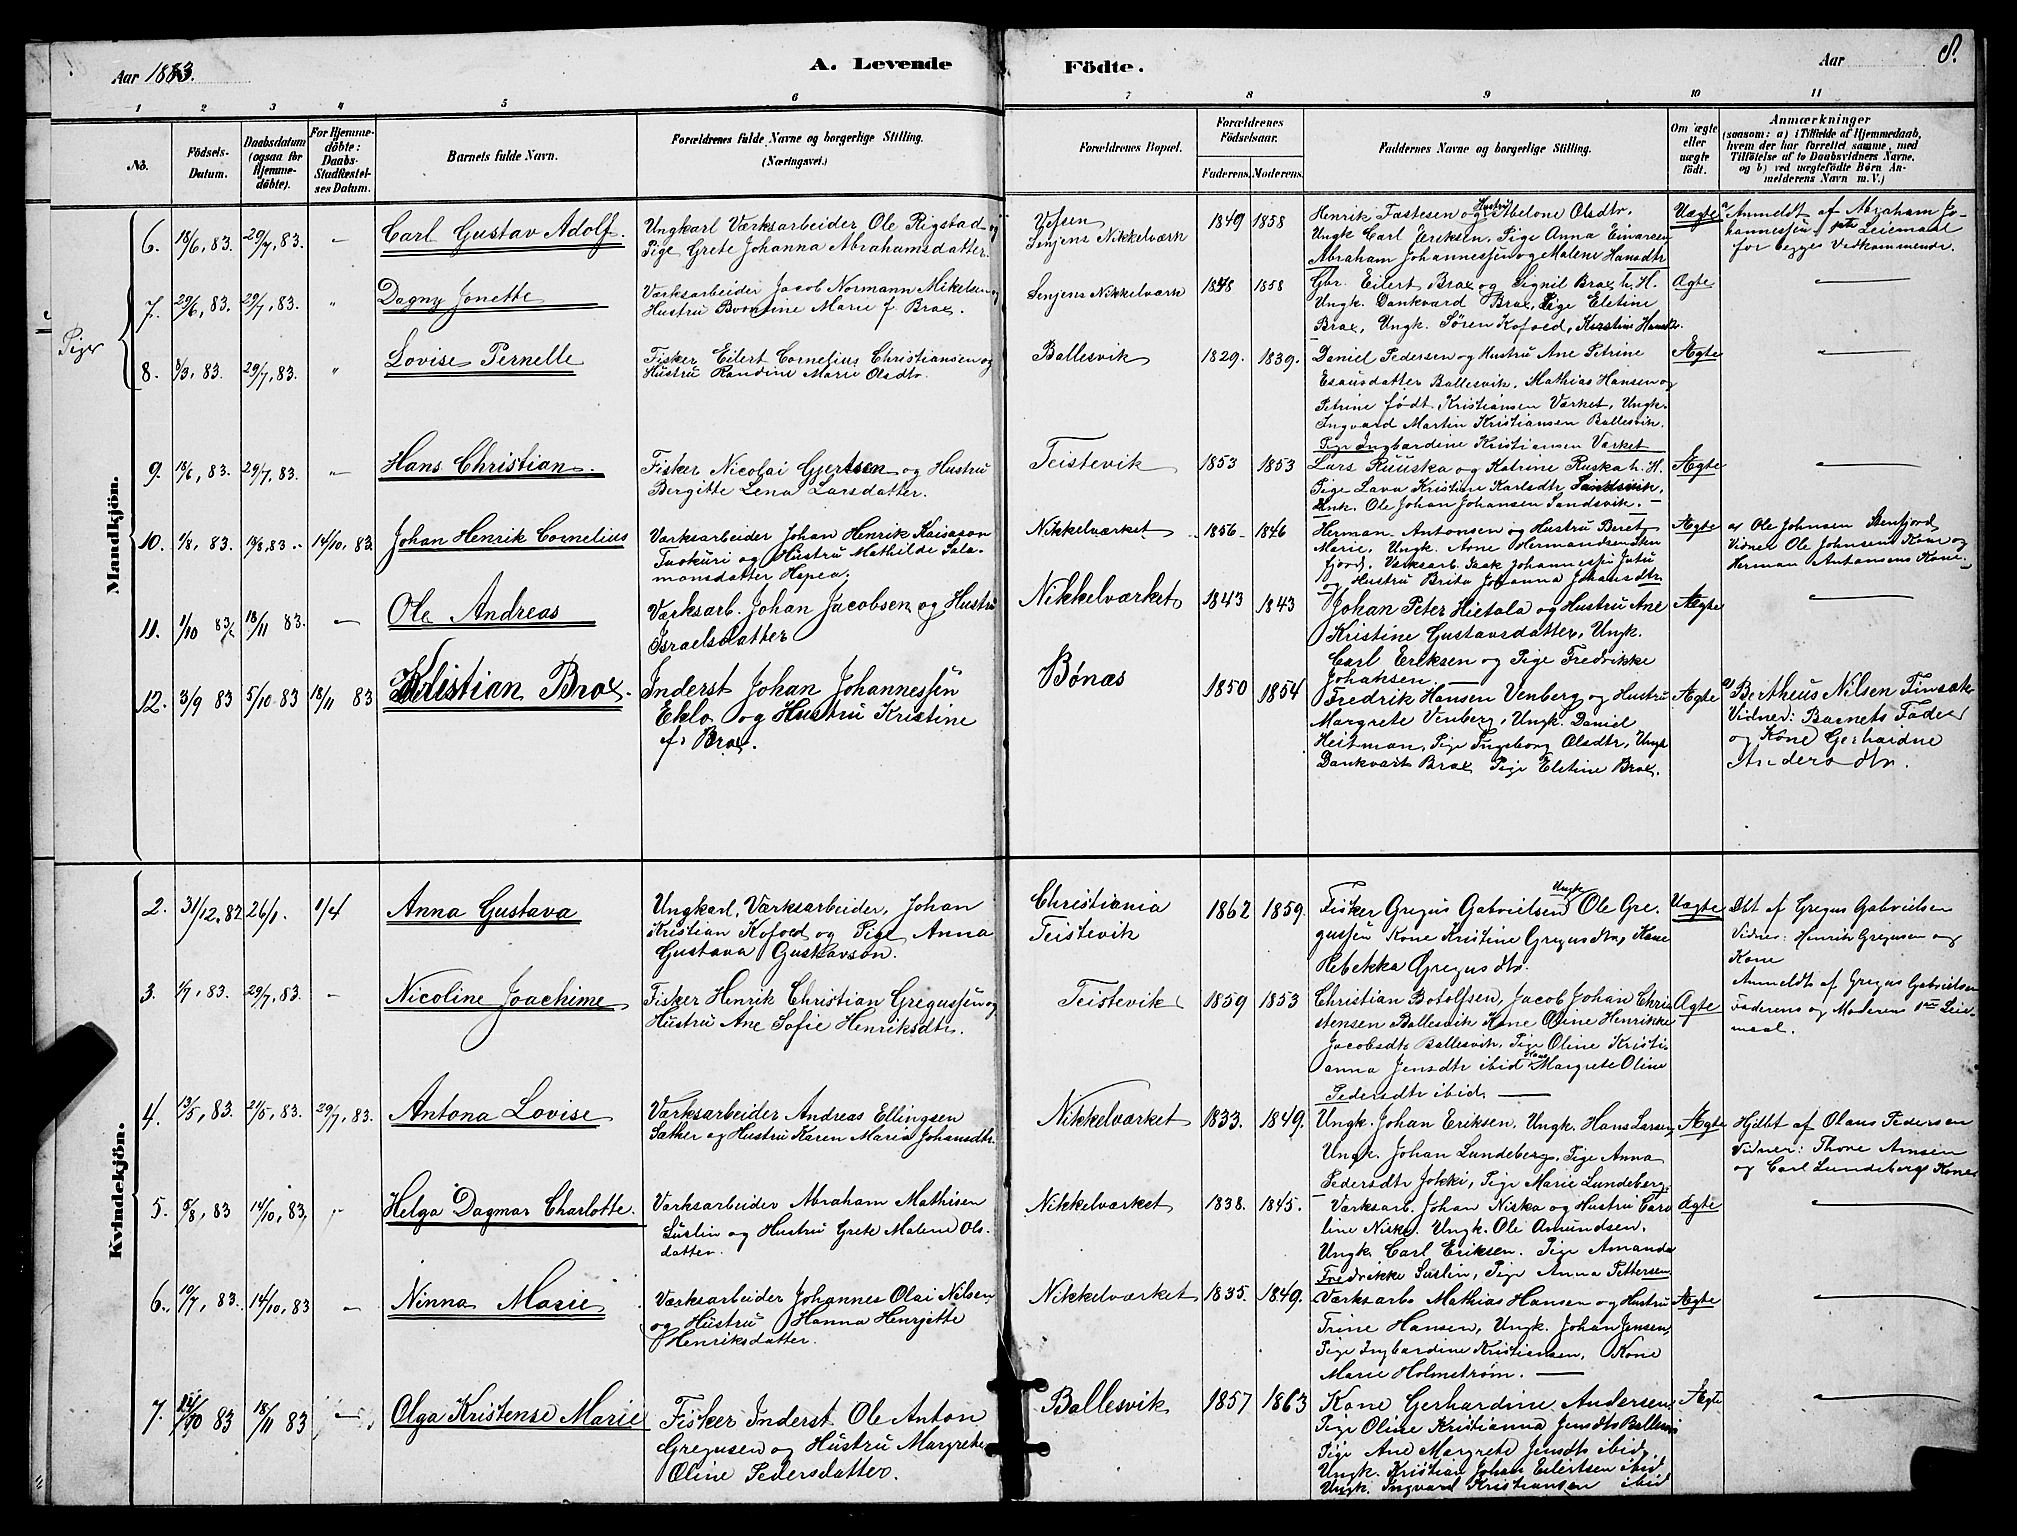 Aar 1883.
A. Levende Födte.
Aar
8.
1 2 3 4 5 6 7 8 9 10 11
No.
Födsels-Datum.
Daabsdatum (ogsaa for Hjemmedöbte).
For Hjemmedöbte: Daabs-Stadfæstelses Datum.
Barnets fulde Navn.
Forældrenes fulde Navne og borgerlige Stilling.
(Næringsvei.)
Forældrenes Bopæl.
Forældrenes Födselsaar.
Faderens. Moderens.
Faddernes Navne og borgerlige Stilling.
Om ægte eller uægte födt.
Anmærkninger
(saasom: a) i Tilfælde af Hjemmedaab, hvem der har forrettet samme, med Tilföielse af to Daabsvidners Navne, og b) ved uægtefödte Börn Anmelderens Navn m. V.)
Mandkjön.
6. 18/6, 83. 29/7, 83. – Carl Gustav Adolf.
Ungkarl Værksarbeider Ole Rigstad og
Pige Grete Johanna Abrahamsdatter.
Vefsen
Senjens Nikkelværk
1849 1858
Henrik Fastesen og Hustru Abelone Olsdtr.
Ungk Carl Eriksen, Pige Anna Einarsen
Abraham Johannessen og Malene Hansdtr
Uægte
Anmeldt af Abraham Johannessen 1ste Leiemaal
for begges Vedkommende.
Piger
7. 29/6, 83. 29/7, 83. " Dagny Jonette
Værksarbeider Jacob Normann Mikelsen og
Hustru Bentine Marie f. Brax.
Senjens Nikkelværk
1848 1858
Gbr. Eilert Brax og Signil Brax h. H.
Ungk. Dankvard Brax, Pige Elstine
Brax, Ungk. Søren Kofoed, Kirstine Hansd.
Ægte –
8. 8/3, 83. 29/7, 83. " Lovise Pernelle
Fisker Eilert Cornelius Christiansen og
Hustru Randine Marie Olsdtr.
Ballesvik
1829. 1839.
Daniel Pedersen og Hustru Ane Petrine
Esausdatter Ballesvik, Mathias Hansen og
Petrine født Kristiansen Værket, Ungk.
Ingvard Martin Kristiansen Ballesvik.
Pige Ingbardine Kristiansen Værket
Ægte –
9. 18/6, 83. 29/7, 83. " Hans Christian.
Fisker Nicolai Gjertsen og Hustru
Bergitte Lena Larsdatter.
Teistevik
1853 1853
Lars Ruuska og Katrine Ruska h. H.
Pige Lava Kristine Karlsdtr Sandsvik,
Unk. Ole Johan Johansen Sandsvik. –
Ægte –
10. 1/8, 83. 19/8, 83. 14/10, 83. Johan Henrik Cornelius
Værksarbeider Johan Henrik Kaisason
Tuokuri og Hustru Mathilde Salamonsdatter Hepea.
Nikkelværket
1856 1846
Herman Antonsen og Hustru Beret
Marie, Ungk. Arne Hermandsen Stenfjord, Værksarb. Isak Johannessen Jutu
og Hustru Brita Johanna Johansdtr
Ægte
a) Ole Johnsen Stenfjord
Vidner Ole Johnsens Kone og
Herman Antonsens Kone
11. 1/10 83 18/11 83. – Ole Andreas
Værksarb. Johan Jacobsen og Hustru
Israelsdatter
Nikkelværket
1843 1843
Johan Peter Hietala og Hustru Ane
Kristine Gustavsdatter, Ungk.
Carl Eriksen og Pige Fredrikke
Johansen. –
Ægte –
12. 3/9 83 5/10 83 18/11 83 Kristian Brax.
Inderst Johan Johannessen
Eklo og Hustru Kristine
f. Brax.
Bønæs
1850 1854
Fredrik Hansen Venberg og Hustru
Margrete Venberg, Ungk. Daniel
Heitman, Pige Ingeborg Olsdtr, Ungk
Dankvart Brax Pige Elstine Brax.
Ægte
a) Bertheus Nilsen Finsæter
Vidner: Barnets Fader
og Kone Gerhardne
Andersdtr.
Kvindekjön.
2. 31/12, 82 26/1. 1/4 Anna Gustava
Ungkarl, Værksarbeider, Johan
Kristian Kofoed og Pige Anna
Gustava Gustavson.
Christiania
Teistevik
1862 1859.
Fisker Gregus Gabrielsen Ungk Ole Gregussen Kone Kristine Gregusdtr, Kone
Rebekka Gregusdtr.
Uægte
Dbt af Gregus Gabrielsen
Vidner: Henrik Gregusen og
Kone
Anmeldt af Gregus Gabrielsen
Faderens og Moderens 1ste Leiemaal.
3. 1/7, 83. 29/7, 83. – Nicoline Joachime
Fisker Henrik Christian Gregussen og
Hustru Ane Sofie Henriksdtr.
Teistevik
1859 1853
Christian Botolfsen, Jacob Johan Christensen Ballesvik Kone Oline Henrikke
Jacobsdtr Ballesvik, Pige Oline Kristianna Jensdtr ibid Kone Margrete Oline
Pedersdtr ibid. –
Ægte
4. 13/5, 83. 21/5, 83. 29/7, 83. Antona Lovise
Værksarbeider Andreas Ellingsen
Sæther og Hustru Karen Maria Johansdtr.
Nikkelværket
1833. 1849.
Ungk. Johan Eriksen, Ungk. Hans Larsen,
Ungk. Johan Lundeberg, Pige Anna
Pedersdtr Jokki, Pige Marie Lundeberg.
Ægte
Hjdbt af Olaus Pedersen
Vidner: Thore Arnsen
og Carl Lundebergs Kone
5. 5/8, 83 14/10, 83, – Helga Dagmar Charlotte.
Værksarbeider Abraham Mathisen
Suslin og Hustru Grete Malene Olsdatter.
Nikkelværket
1838. 1845.
Værksarb. Johan Niska og Hustru Caroline Niska. Ungk. Ole Amundsen.
Ungk. Carl Eriksen. Pige Amanda
Fredrikke Suslin, Pige Anna Pettersen
Ægte –
6. 10/7, 83. 14/10, 83 – Ninna Marie
Værksarbeider Johannes Olai Nilsen
og Hustru Hanna Henrjette
Henriksdatter.
Nikkelværket
1835. 1849.
Værksarb. Mathias Hansen og Hustru
Trine Hansen, Ungk. Johan Jensen,
Pige Ingbardine Kristiansen, Kone
Marie Holmstrøm. –
Ægte –
7. /10 83 18/11 83 – Olga Kristense Marie
Fisker Inderst Ole Anton
Gregusen og Hustru Margrete
Oline Pedersdatter.
Ballesvik
1857 1863
Kone Gerhardine Andersen,
Pige Oline Kristianna Jensdtr Ballesvi
Pige Ane Margrete Jensdtr ibid,
Ungk. Kristian Johan Eilertsen ibid
Ungk. Ingvard Kristiansen ibid
Ægte –